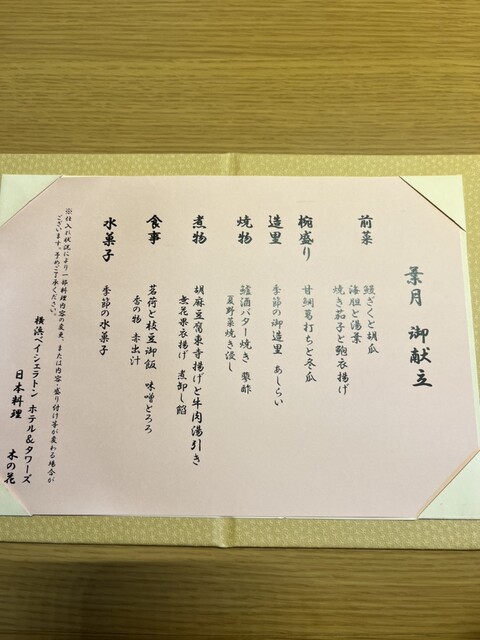 葉月 御献立
前菜
鰻ざくと胡瓜
海胆と湯葉
焼き茄子と鮑衣揚げ
椀盛り
甘鯛葛打ちと冬瓜
造里
季節の御造里 あしらい
焼物
鱸酒バター焼き 蓼酢
夏野菜焼き浸し
煮物
胡麻豆腐東寺揚げと牛肉湯引き
無花果衣揚げ 煮卸し餡
食事
茗荷と枝豆御飯 味噌とろろ
香の物 赤出汁
水菓子
季節の水菓子
※仕入れ状況により一部料理内容の変更、または内容・盛り付け等が変わる場合が
ございます。予めご了承ください。
横浜ベイシェラトン ホテル&タワーズ
日本料理 木の花